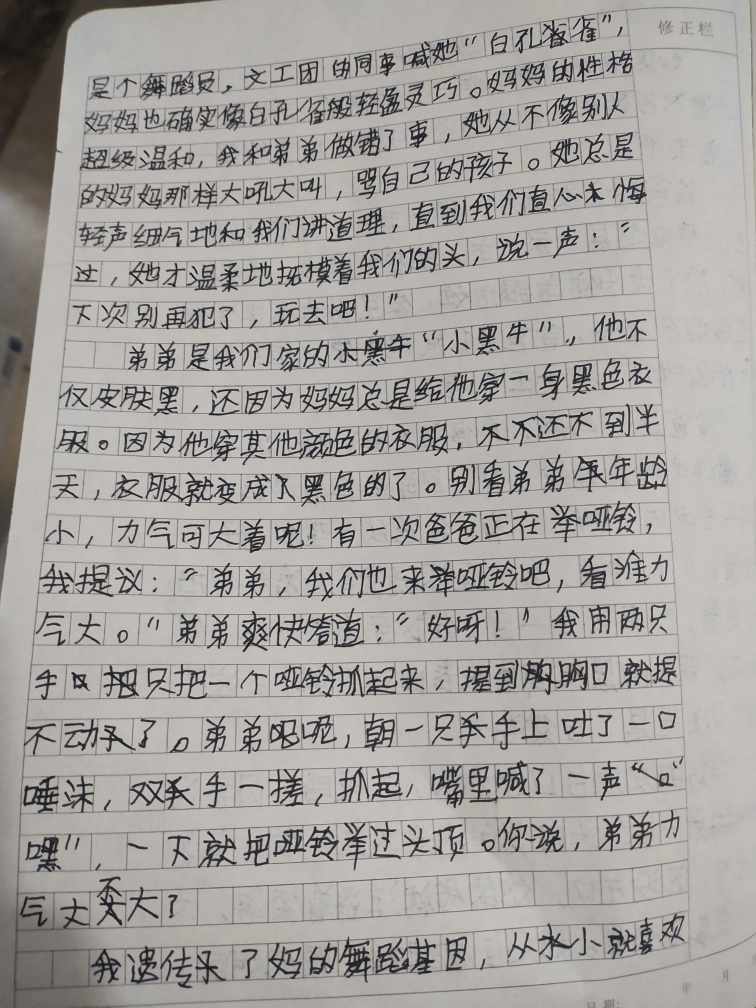 修正栏
是个舞蹈员，文工团的同事喊她“白孔雀”，
妈妈也确实像白孔雀般轻盈灵巧。妈妈的性格
超级温和，我和弟弟做错了事，她从不像别人
的妈妈那样大吼大叫，骂自己的孩子。她总是
轻声细气地和我们讲道理，直到我们真心悔
过，她才温柔地抚摸着我们的头，说一声：“
下次别再犯了，玩去吧！”
弟弟是我们家的“小黑牛”，他不
仅皮肤黑，还因为妈妈总是给他穿一身黑色衣
服。因为他穿其他颜色的衣服，不还不到半
天，衣服就变成黑色的了。别看弟弟年龄
小，力气可大着呢！有一次爸爸正在举哑铃，
我提议：“弟弟，我们也来举哑铃吧，看谁力
气大。”弟弟爽快答道：“好呀！”我用两只
手只把一个哑铃抓起来，提到胸口就提
不动了。弟弟呢，朝一只手上吐了一口
唾沫，双手一搓，抓起，嘴里喊了一声“
嘿”，一下就把哑铃举过头顶。你说，弟弟力
气大不大？
我遗传了妈的舞蹈基因，从小就喜欢
年 月
日期: